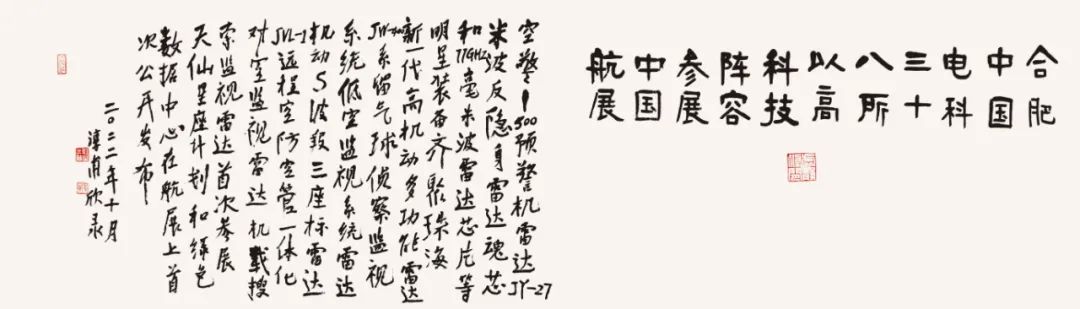 合肥
中国
电科
三十
八所
以高
科技
阵容
参展
中国
航展
空警-500预警机雷达JY-27
米波反隐身雷达魂芯
和77GHz毫米波雷达芯片等
明星装备齐聚珠海
新一代高机动多功能雷达
系留气球侦察监视
系统低空监视系统雷达
机动S波段三座标雷达
JYL-1远程空防空管一体化
对空监视雷达机载搜
索监视雷达首次参展
天仙星座计划和绿色
数据中心在航展上首
次公开发布
二〇二二年十月
欣录